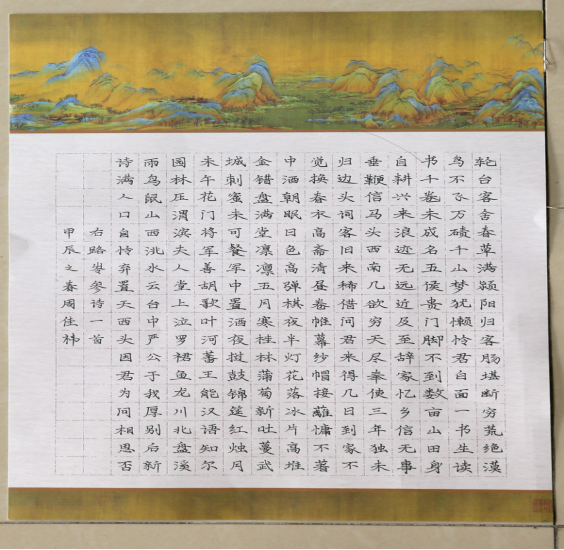 轮台客舍春草满颍阳归客肠堪断穷荒绝漠
鸟不飞万碛千山梦犹懒怜君白面一书生读
书千卷未成名五侯贵门脚不到数亩山田身
自耕兴来浪迹无远近及至辞家忆乡信无事
垂鞭信马头西南几欲穷天尽奉使三年独未
归边头词客旧来稀借问君来得几日到家不
觉换春衣高斋清昼卷帷幕纱帽接離慵不著
中酒朝眠日色高弹棋夜半灯花落冰片高堆
金错盘满堂凛凛五月寒桂林蒲萄新吐蔓武
城刺蜜未可餐军中置酒夜挝鼓锦筵红烛月
未午花门将军善胡歌叶河蕃王能汉语知尔
园林压渭滨夫人堂上泣罗裙鱼龙川北盘溪
雨鸟鼠山西洮水云台中严公于我厚别后新
诗满人口自怜弃置天西头因君为问相思否
右路岑参诗一首
甲辰之春周佳祎